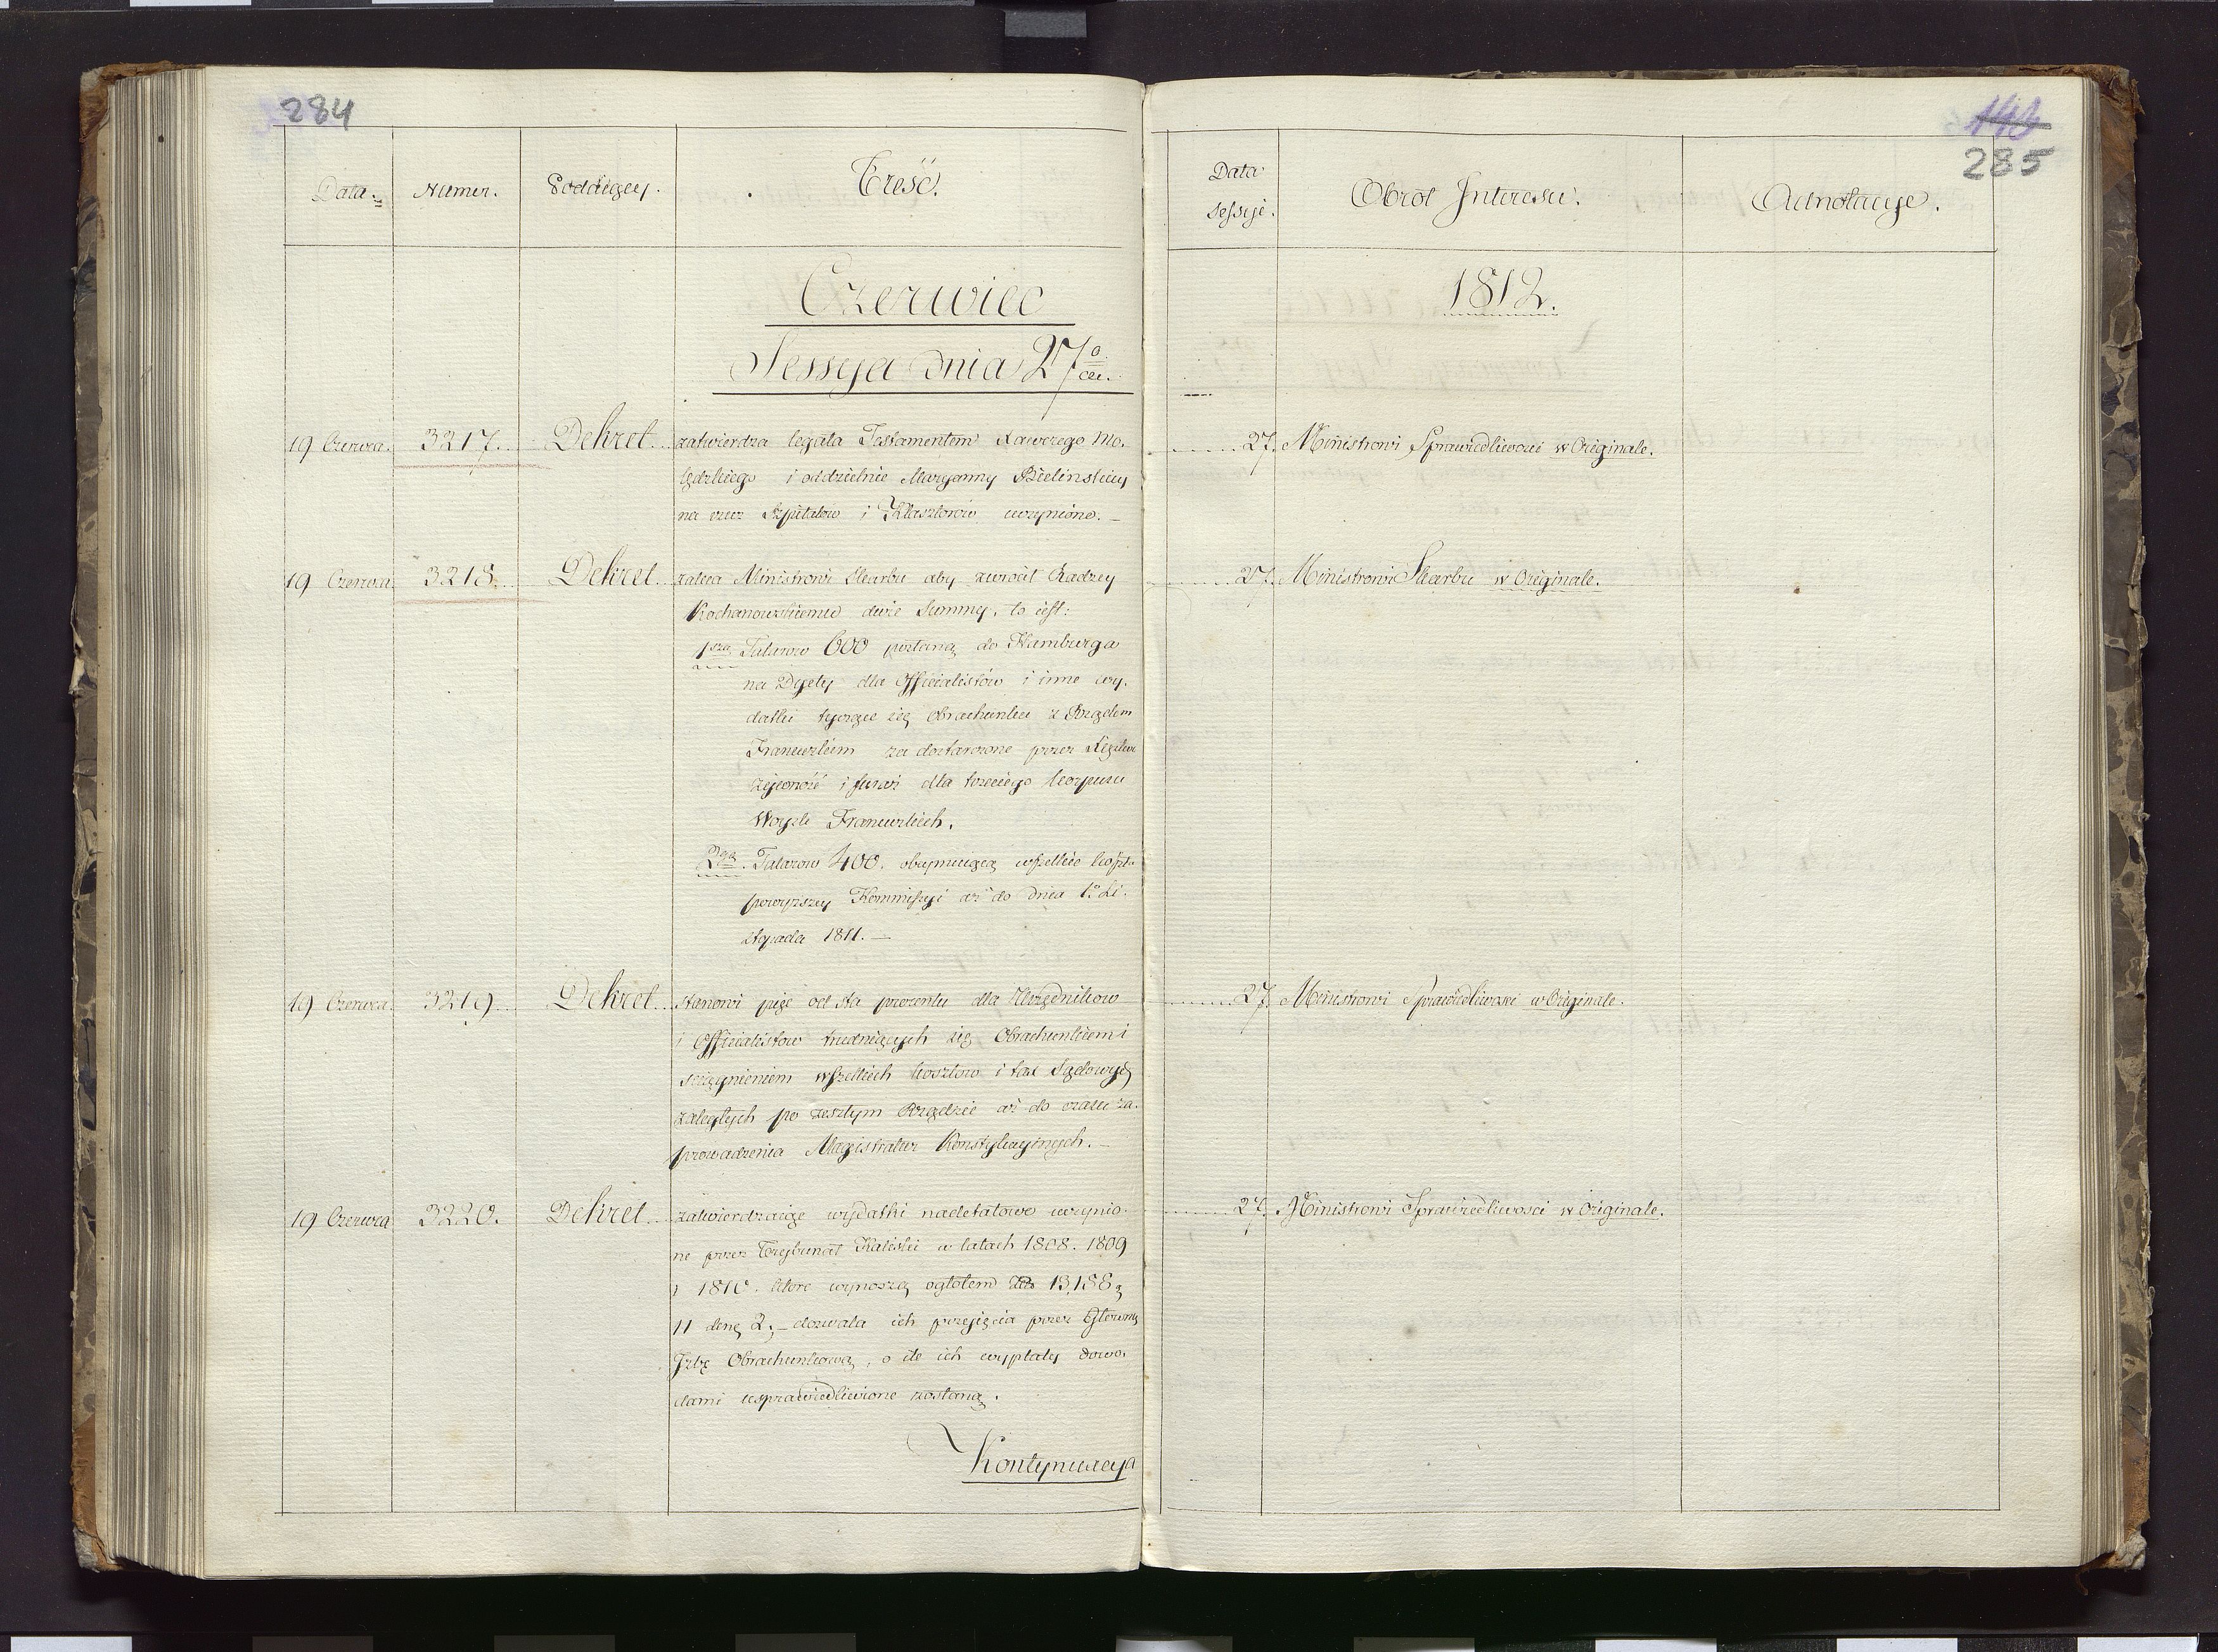 284
Data. Numer. Poddaiący. Treść.
Czerwiec
Sessya dnia 27º
19 Czerwca. 3217. Dekret zatwierdza legata Testamentem Xawerego Mo-
lędzkiego i oddzielnie Maryanny Bielinskiey
na rzecz Szpitalow i Klasztorow uczynione. —
19 Czerwca 3218. Dekret zaleca Ministrowi Skarbu aby zwrocił Radzcy
Kochanowskiemu dwie Summy, to iest:
1szą Talarow 600 posłaną do Hamburga
na Dyety dla Officialistów i inne wy-
datki tyczące się Obrachunku z Rządem
Francuzkim za dostarczone przez Xięstwo
żywność i furaż dla trzeciego korpusu
Woysk Francuzkich.
2gą. Talarow 400. obeymuiącą wszelkie koszta
powyższey Kommissyi aż do dnia 1º Li-
stopada 1811. —
19 Czerwca. 3219 Dekret stanowi pięć od sta procentu dla Urzędnikow
i Officialistow trudniących się Obrachunkiem i
sciągnieniem wszelkich kosztow i tax Sądowych
zaległych po zeszłym Rządzie aż do czasu za-
prowadzenia Magistratur Konstytucyinych. —
19 Czerwca 3220. Dekret zatwierdzaiąc wydatki nadetatowo uczynio-
ne przez Trybunał Kaliski w latach 1808. 1809
i 1810. ktore wynoszą ogołem 13,158
11 den 2. — dozwala ich przejęcia przez Główną
Izbę Obrachunkową, o ile ich wypłaty dowo-
dami usprawiedliwione zostaną.
Kontynuacya
285
Data Sessyi. Obrot Interesu. Adnotacye.
1812.
27. Ministrowi Sprawiedliwosci w Originale.
27. Ministrowi Skarbu w Originale.
27. Ministrowi Sprawiedliwosci w Originale.
27. Ministrowi Sprawiedliwosci w Originale.